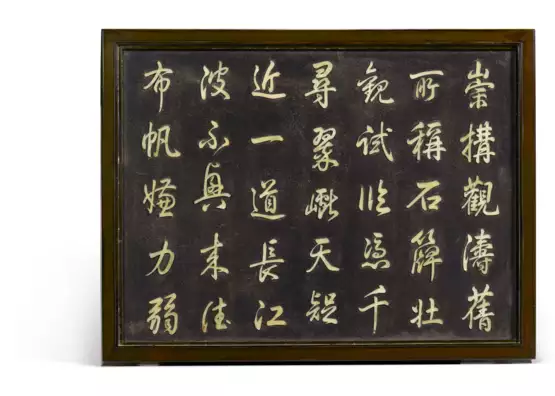 崇構觀濤舊
所稱石簰壯
觀試臨憑千
尋翠巘天疑
近一道長江
波不興来往
布帆嫌力弱